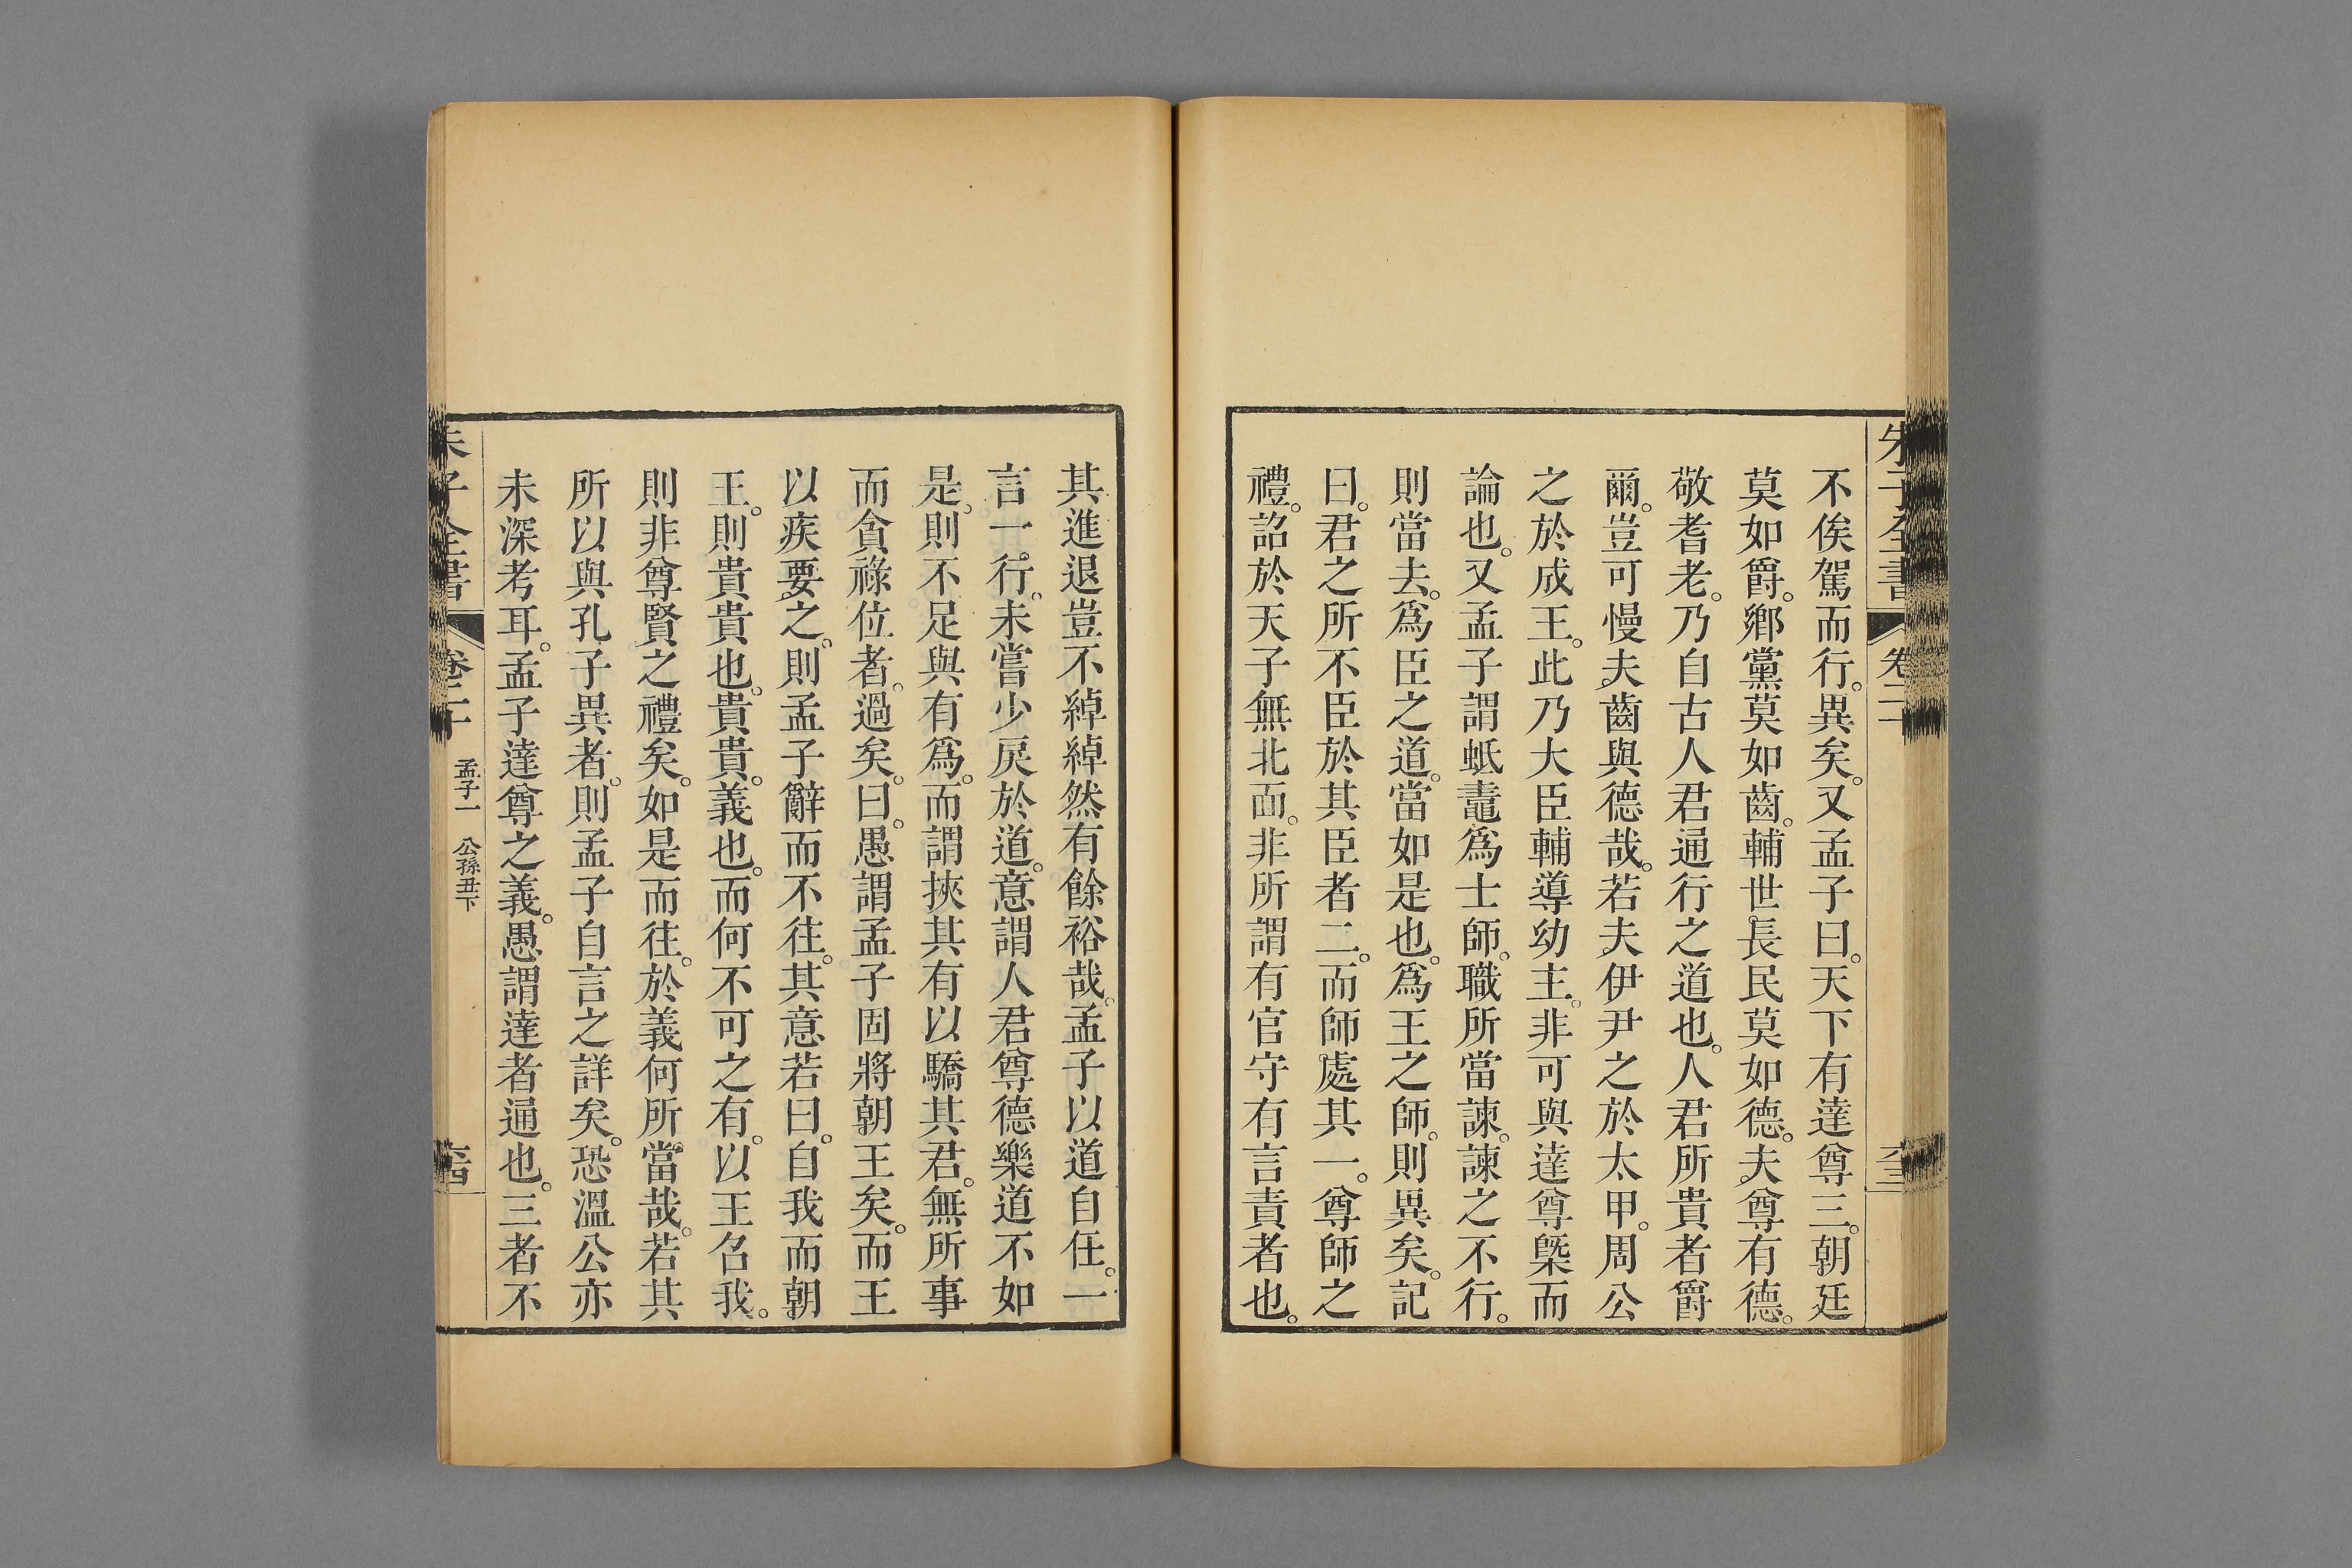 朱子全書 卷二十 六十三
不俟駕而行。異矣。又孟子曰。天下有達尊三。朝廷
莫如爵。鄉黨莫如齒。輔世長民莫如德。夫尊有德。
敬耆老。乃自古人君通行之道也。人君所貴者爵
爾。豈可慢夫齒與德哉。若夫伊尹之於太甲。周公
之於成王。此乃大臣輔導幼主。非可與達尊槩而
論也。又孟子謂蚳鼃爲士師。職所當諫。諫之不行。
則當去。爲臣之道。當如是也。爲王之師。則異矣。記
曰。君之所不臣於其臣者二。而師處其一。尊師之
禮。詔於天子無北面。非所謂有官守有言責者也。
其進退豈不綽綽然有餘裕哉。孟子以道自任。一
言一行。未嘗少戾於道。意謂人君尊德樂道不如
是。則不足與有爲。而謂挾其有以驕其君。無所事
而貪祿位者。過矣。曰。愚謂孟子固將朝王矣。而王
以疾要之。則孟子辭而不往。其意若曰。自我而朝
王。則貴貴也。貴貴。義也。而何不可之有。以王召我。
則非尊賢之禮矣。如是而往。於義何所當哉。若其
所以與孔子異者。則孟子自言之詳矣。恐溫公亦
未深考耳。孟子達尊之義。愚謂達者通也。三者不
朱子全書 卷二十 孟子一 公孫丑下 六十四